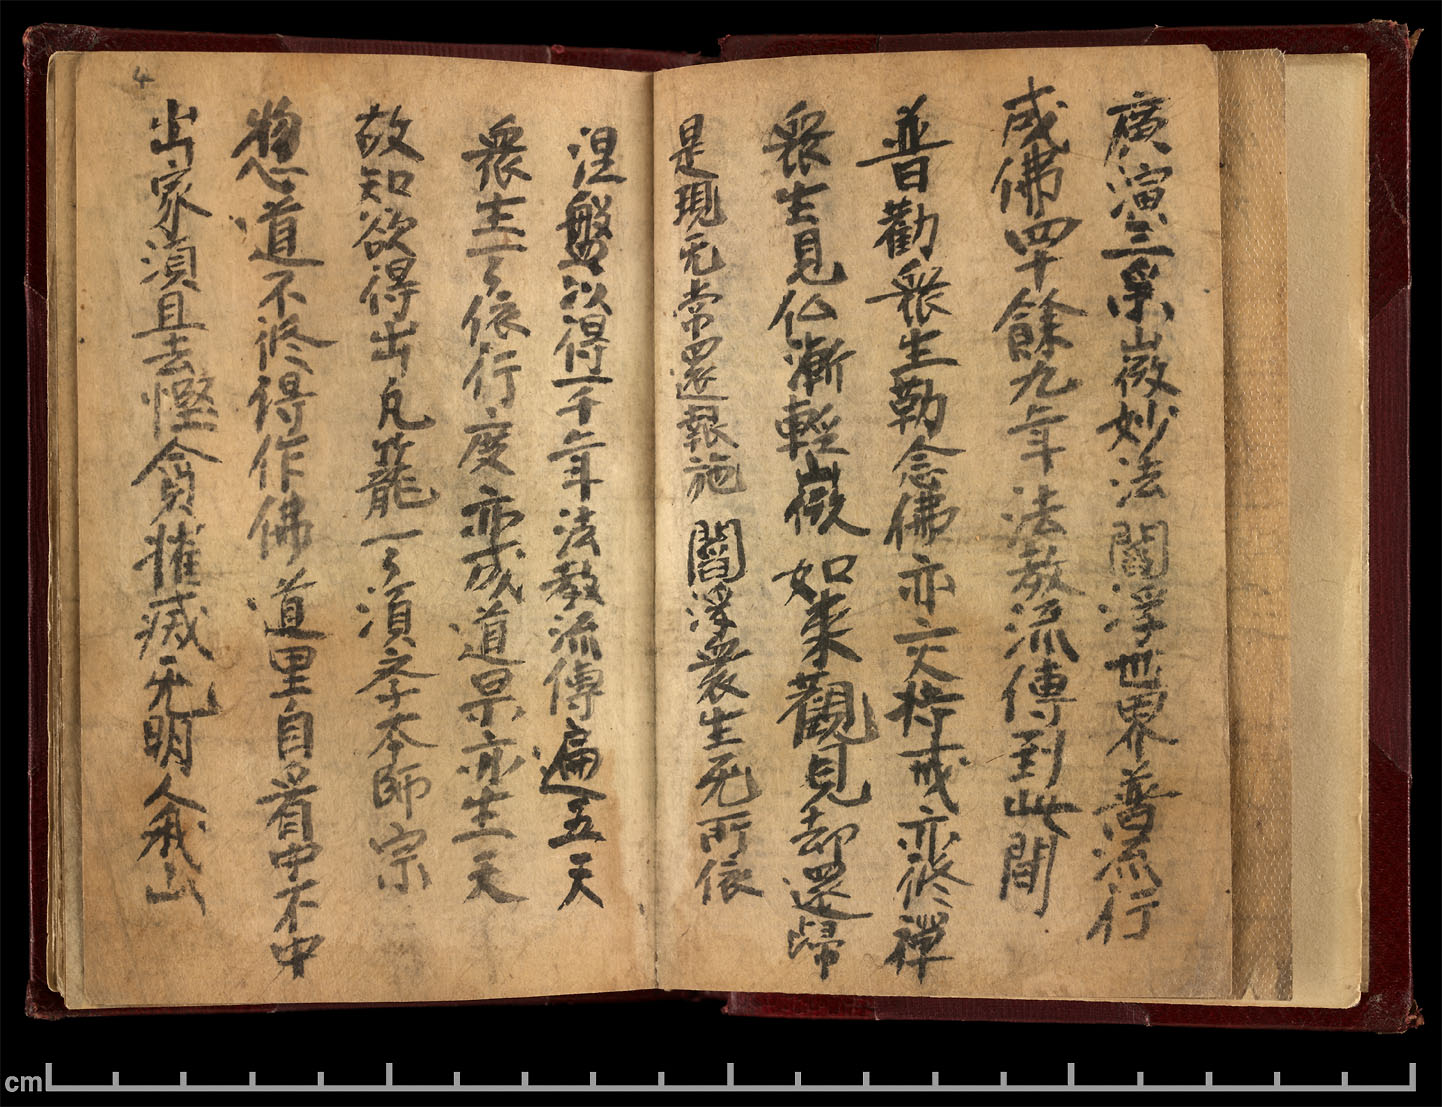 廣演三乘微妙法 閻浮世界普流行
成佛四十餘九年 法教流傳到此間
普勸衆生勤念佛 亦六持戒亦修禪
衆生見仏漸輕微 如來觀見却還歸
是現无常四還報施 閻浮衆生死所依
涅盤以得一千年 法教流傳遍五天
衆生一々依行度 亦成道果亦生天
故知欲得出凡籠 一々須孝本師宗
惣道不修得作佛 道里自看中不中
出家須且去慳貪 摧滅无明人我山
4
cm